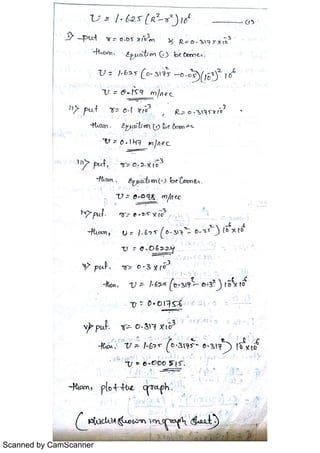 U = 1.625 (R²-r²) 10⁶ —— (1)
i) put r = 0.05 x10⁻³m & R = 0.3175x10⁻³
then. Equation (1) be comes.
U = 1.625 (0.3175² - 0.05²)(10⁻³)² 10⁶
U = 0.159 m/sec
ii) put r = 0.1 x10⁻³, R = 0.3175x10⁻³
then. Equation (1) be comes
U = 0.147 m/sec
iii) put, r = 0.2 x10⁻³
then. Equation (1) be comes.
U = 0.098 m/sec
iv) put. r = 0.25 x10⁻³
then, U = 1.625 (0.317² - 0.25²) 10⁻⁶ x 10⁶
U = 0.06224
v) put. r = 0.3 x10⁻³
then. U = 1.625 (0.317² - 0.3²) 10⁻⁶ x 10⁶
U = 0.01756
vi) put. r = 0.317 x10⁻³
then. U = 1.625 (0.3175² - 0.317²) 10⁻⁶ x10⁶
U = 0.000515.
then, plot the graph.
(which is shown in graph sheet.)
Scanned by CamScanner